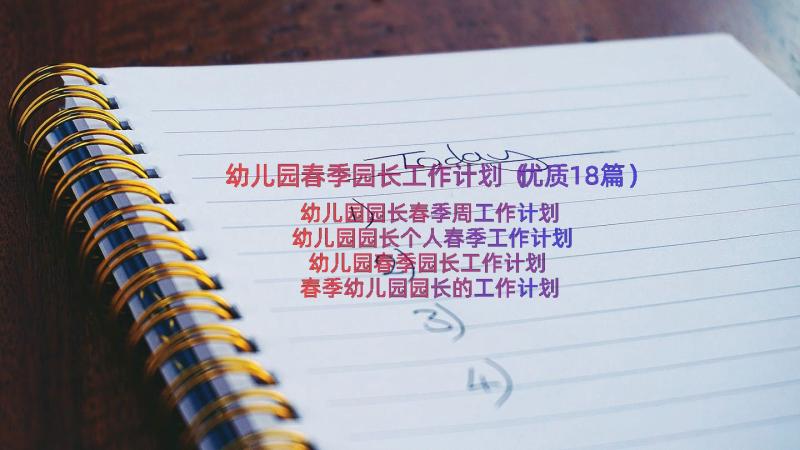 Today
幼儿园春季园长工作计划（优质18篇）
1)
幼儿园园长春季周工作计划
幼儿园园长个人春季工作计划
2)
幼儿园春季园长工作计划
春季幼儿园园长的工作计划
3)
4)